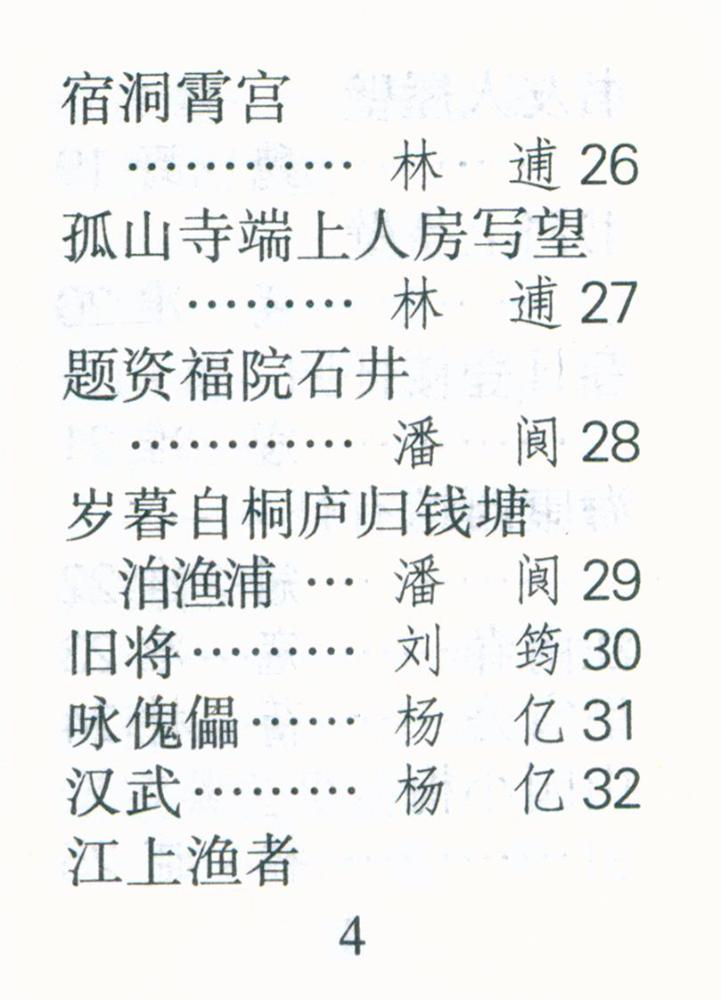 宿洞霄宫
………… 林 逋 26
孤山寺端上人房写望
……… 林 逋 27
题资福院石井
………… 潘 阆 28
岁暮自桐庐归钱塘
泊渔浦 … 潘 阆 29
旧将……… 刘 筠 30
咏傀儡…… 杨 亿 31
汉武……… 杨 亿 32
江上渔者
4